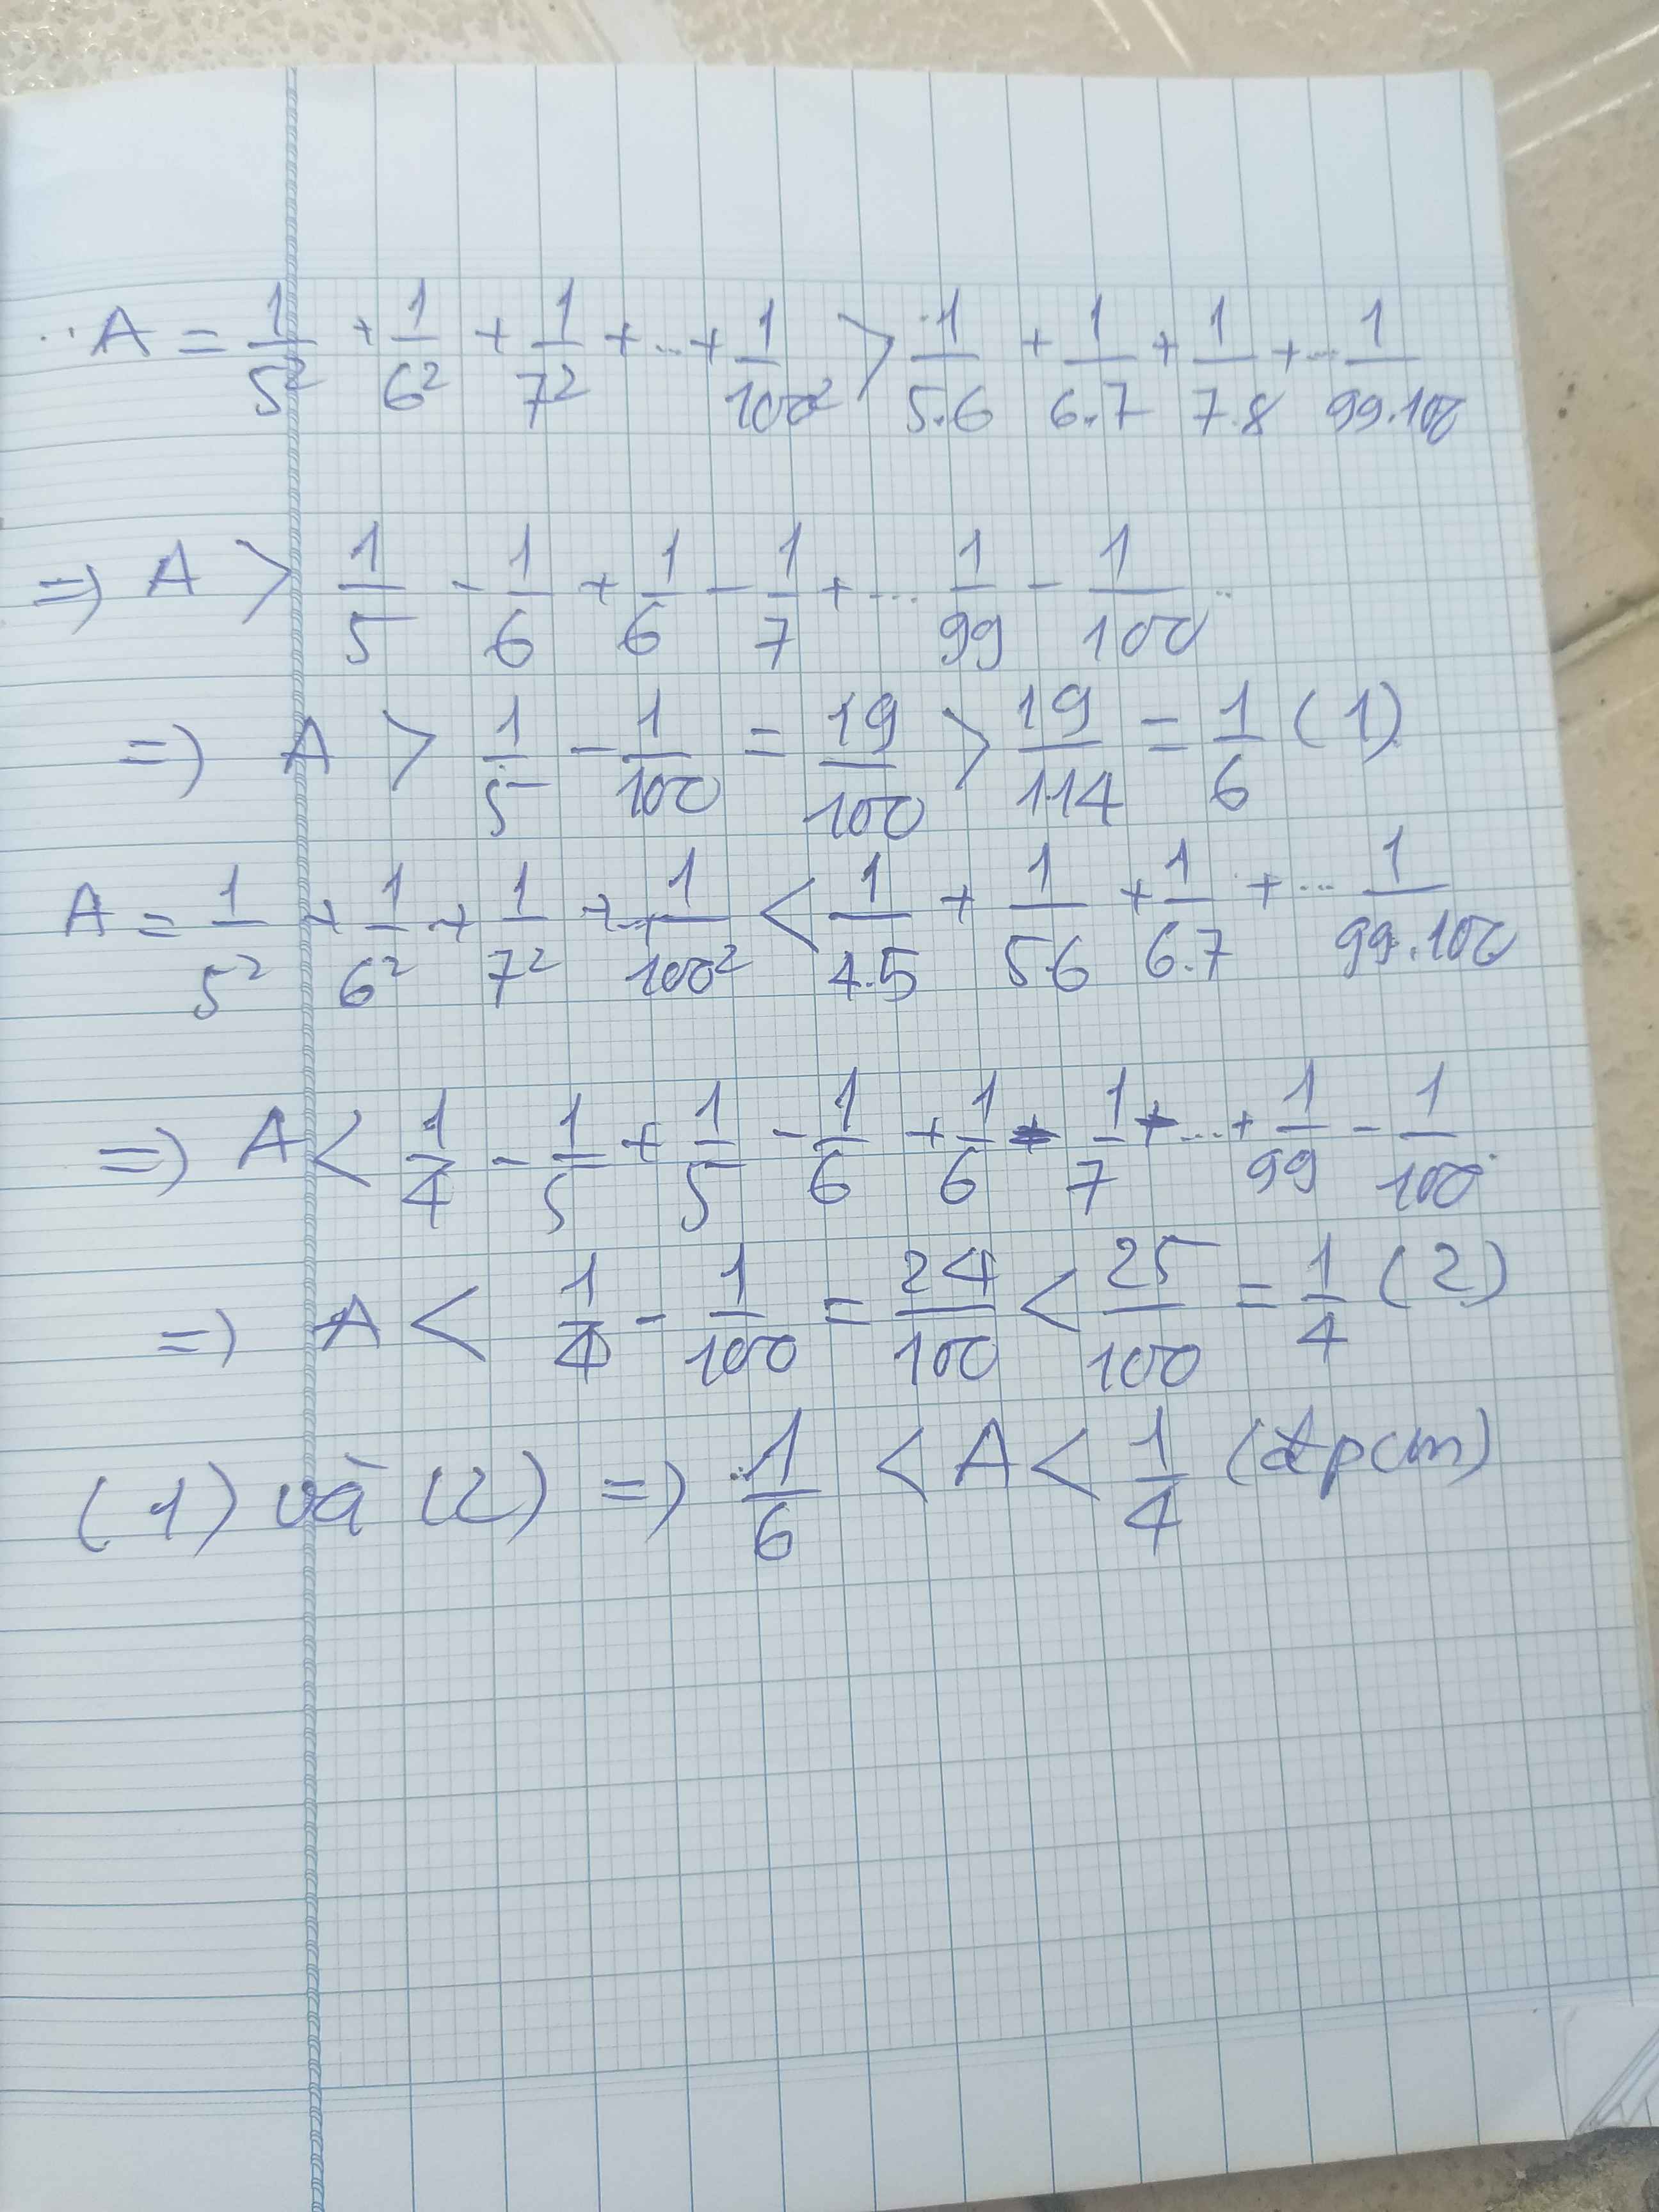 A = 1/5² + 1/6² + 1/7² + ... + 1/100² > 1/5.6 + 1/6.7 + 1/7.8 + ... 1/99.100
=> A > 1/5 - 1/6 + 1/6 - 1/7 + ... 1/99 - 1/100
=> A > 1/5 - 1/100 = 19/100 > 19/114 = 1/6 (1)
A = 1/5² + 1/6² + 1/7² + ... + 1/100² < 1/4.5 + 1/5.6 + 1/6.7 + ... 1/99.100
=> A < 1/4 - 1/5 + 1/5 - 1/6 + 1/6 - 1/7 + ... + 1/99 - 1/100
=> A < 1/4 - 1/100 = 24/100 < 25/100 = 1/4 (2)
(1) và (2) => 1/6 < A < 1/4 (đpcm)